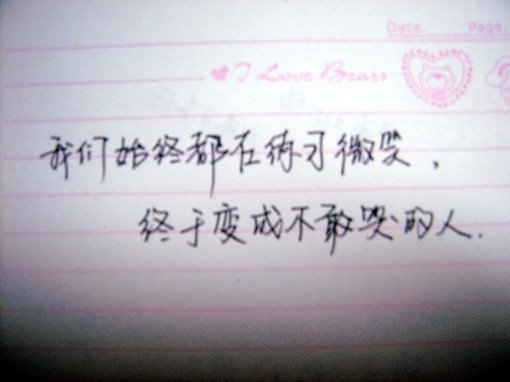 Date. Page.
I Love Bears
我们始终都在练习微笑，
终于变成不敢哭的人.